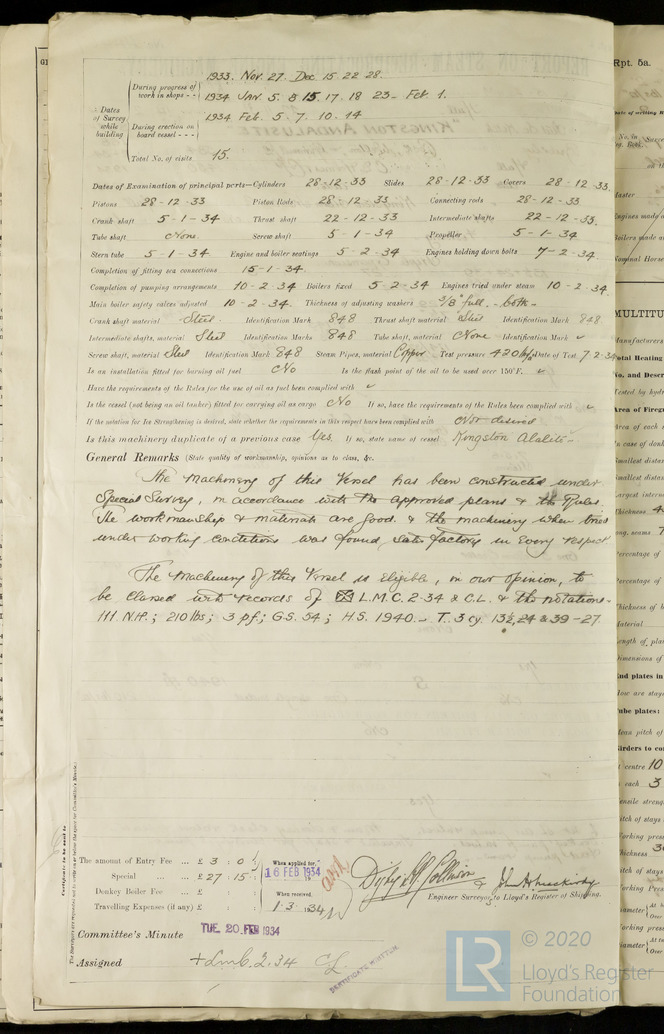 Dates of Survey while building
During progress of work in shops - -
1933. Nov. 27. Dec. 15. 22. 28.
1934 Jan. 5. 8 15. 17. 18 23 - Feb 1.
During erection on board vessel - - -
1934 Feb. 5. 7. 10. 14
Total No. of visits 15.
Dates of Examination of principal parts—Cylinders 28-12-33 Slides 28-12-33 Covers 28-12-33.
Pistons 28-12-33 Piston Rods 28-12-33 Connecting rods 28-12-33
Crank shaft 5-1-34 Thrust shaft 22-12-33 Intermediate shafts 22-12-33.
Tube shaft None. Screw shaft 5-1-34 Propeller 5-1-34
Stern tube 5-1-34 Engine and boiler seatings 5-2-34 Engines holding down bolts 7-2-34.
Completion of fitting sea connections 15-1-34.
Completion of pumping arrangements 10-2-34 Boilers fixed 5-2-34 Engines tried under steam 10-2-34
Main boiler safety valves adjusted 10-2-34. Thickness of adjusting washers 3/8" full - both -
Crank shaft material Steel. Identification Mark 848 Thrust shaft material Steel Identification Mark 848
Intermediate shafts, material Steel Identification Marks 848 Tube shaft, material None Identification Mark ✓
Screw shaft, material Steel Identification Mark 848 Steam Pipes, material Copper Test pressure 420 lb/□ Date of Test 7.2.34
Is an installation fitted for burning oil fuel No Is the flash point of the oil to be used over 150°F. ✓
Have the requirements of the Rules for the use of oil as fuel been complied with ✓
Is the vessel (not being an oil tanker) fitted for carrying oil as cargo No If so, have the requirements of the Rules been complied with ✓
If the notation for Ice Strengthening is desired, state whether the requirements in this respect have been complied with Not desired
Is this machinery duplicate of a previous case Yes. If so, state name of vessel Kingston Alalite -
General Remarks (State quality of workmanship, opinions as to class, &c.
The Machinery of this Vessel has been constructed under
Special Survey, in accordance with the approved plans & the Rules
The workmanship & materials are good & the machinery when tried
under working conditions was found satisfactory in every respect
The Machinery of this Vessel is eligible, in our opinion, to
be classed with records of L.M.C. 2-34 & C.L. & the notations -
111 N.H.; 210 lbs; 3 pf; G.S. 54; H.S. 1940. - T. 3 cy. 13½, 24 & 39 - 27.
Certificate to be sent to
The amount of Entry Fee ... £ 3 : 0 :
Special ... £ 27 : 15 :
Donkey Boiler Fee ... £ : :
Travelling Expenses (if any) £ : :
When applied for,
16 FEB 1934
When received,
1.3.1934
Engineer Surveyors to Lloyd's Register of Shipping.
Committee's Minute TUE. 20 FEB 1934
Assigned + LMC. 2.34 CL.
CERTIFICATE WRITTEN
Rpt. 5a.
Date of writing
No. in
Reg. Book.
Master
Engines made
Boilers made
Nominal Horse
MULTITU
Manufacturers
Total Heating
No. and Descr
Tested by hydr
Area of Firegr
Area of each
In case of donk
Smallest dista
Smallest distan
Largest intern
Thickness
Percentage of
Percentage of
Thickness of b
Material
Length of pla
Dimensions of
End plates in
How are stay
Tube plates:
Mean pitch of
Girders to co
centre 10
each 3
Tensile streng
Pitch of stays
Working press
Thickness
Pitch of stays
Working Pres
Diameter { At b
Over
Working press
Diameter { At
Over
LR
© 2020
Lloyd's Register
Foundation